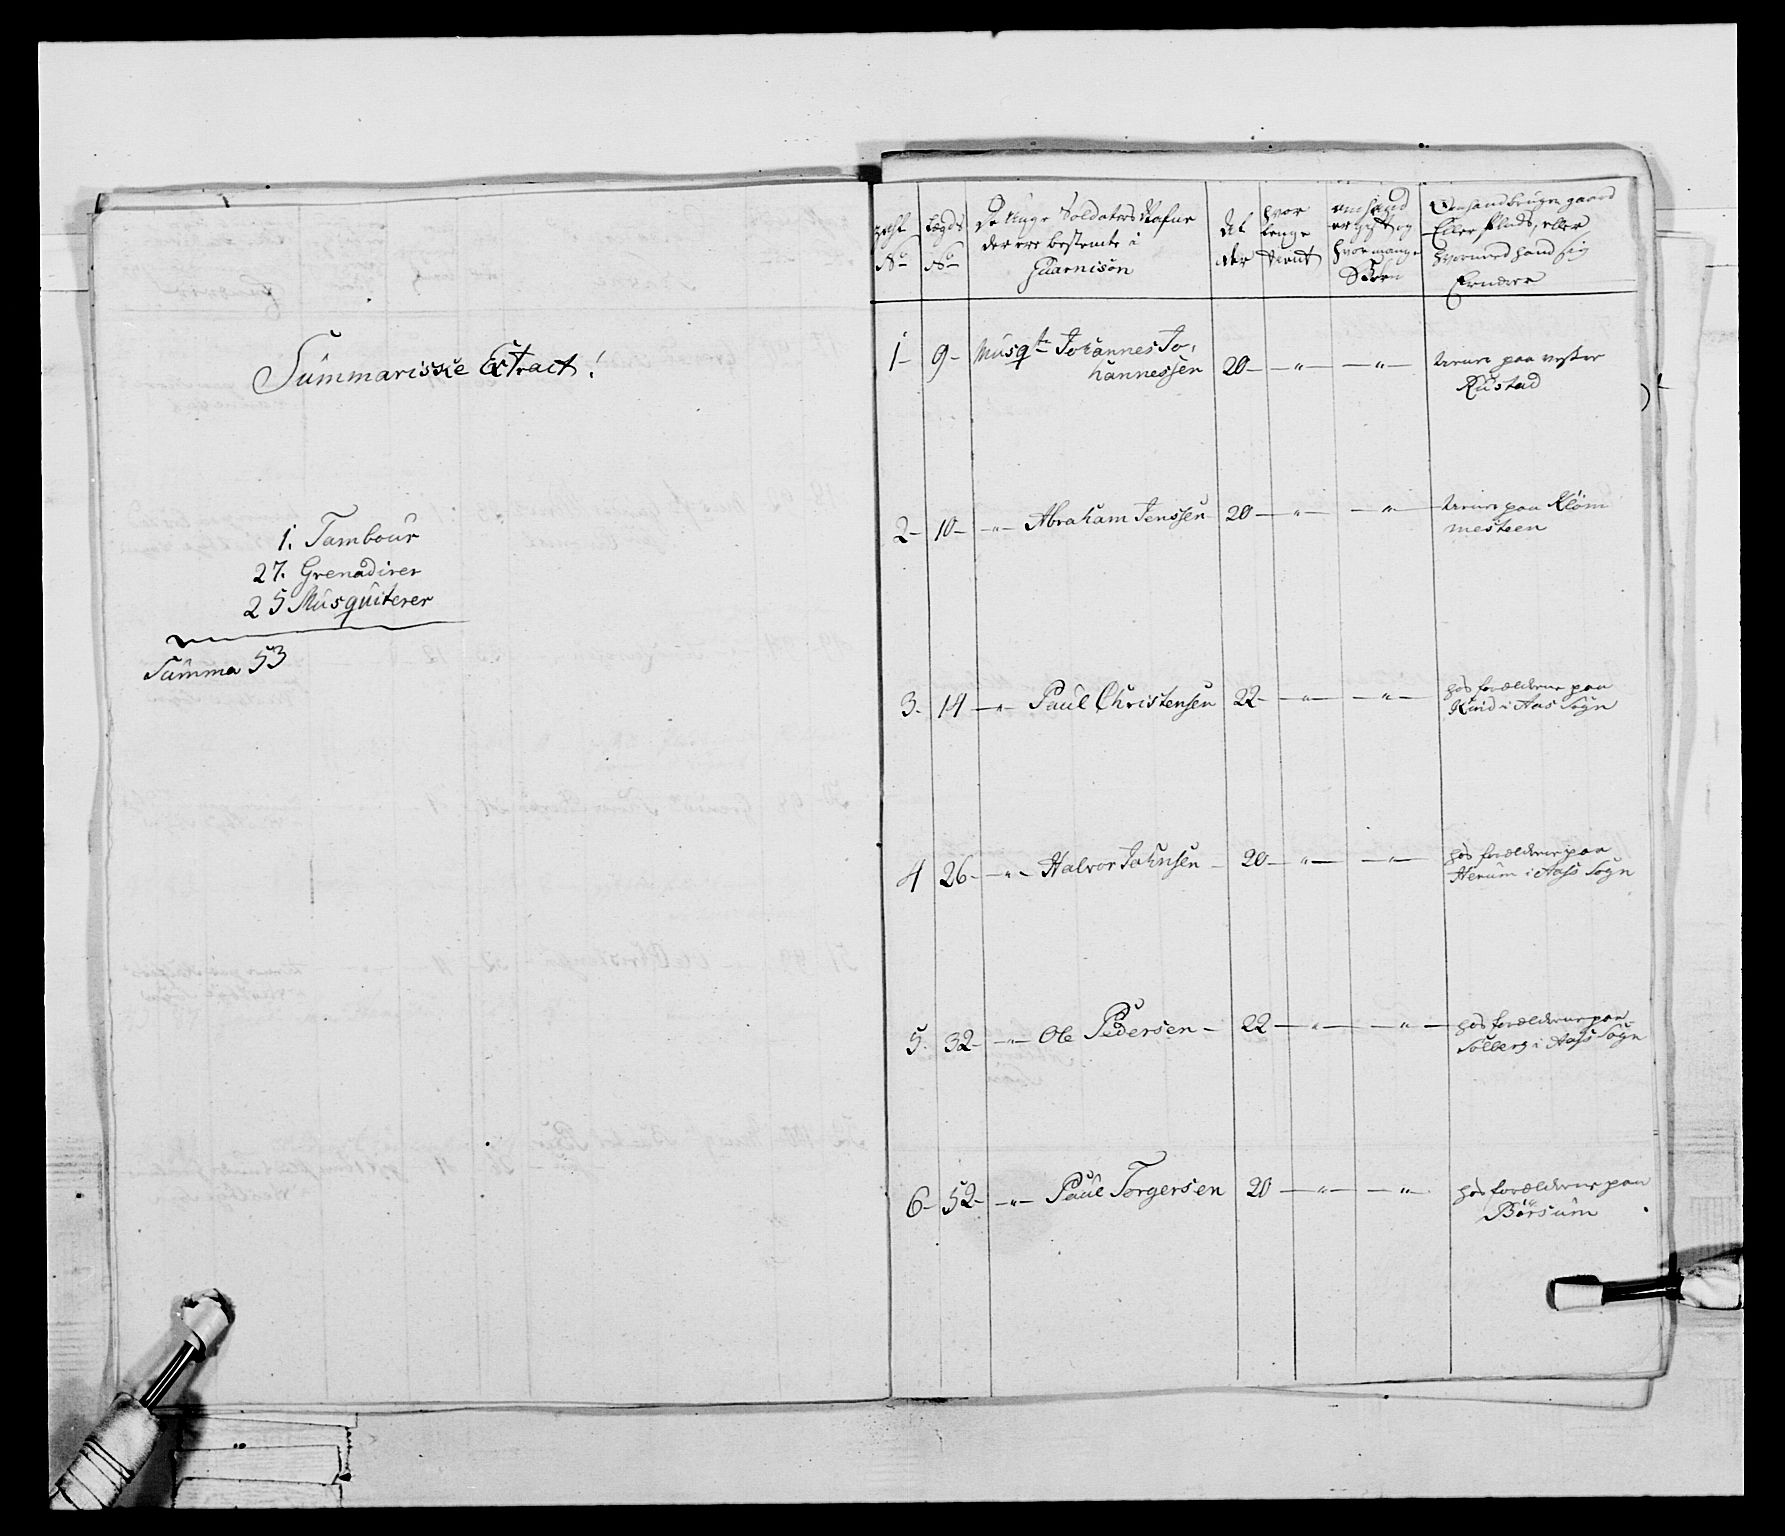 Summariske Extract!
1. Tambour
27. Grenadirer
25 Musquiterer
Summa 53
No Lægds No De Unge Soldaters Nafne der ere bestemte i Guarnison Al der hvor lenge tient om hand er gift og hvor mange Børn Om hand bruger gaard Eller Plads, eller hvormed hand sig Ernærer
1 - 9 - Musqtr Johannes Jo,
hannessen 20 - " - - " - tiener paa vester
Rustad
2 - 10 - " - Abraham Jenssen 20 - " - - " - tiener paa Klom
mesteen
3. 14 - " - Paul Christensen 22 - " - - " - hos forældrene paa
Rud i Aas Sogn
4 26 - " - Halvor Johnsen - 20 - " - - " - hos forældrene paa
Herum i Aass Sogn
5. 32 - " - Ole Pedersen - 22 - " - - " - hos forældrene paa
Solberg i Aass Sogn
6 - 52 - " - Paul Torgersen 20 - " - - " - hos forældrene paa
Børsum